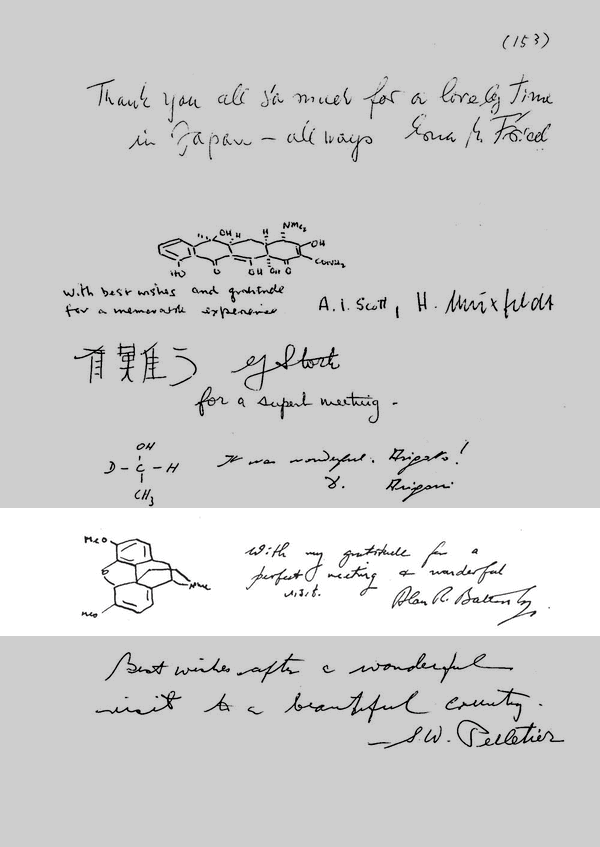 (153)
Thank you all so much for a lovely time
in Japan – all ways
OH H H NMe2
OH
HO O OH OH O CONH2
With best wishes and gratitude
for a memorable experience A. I. Scott, H. Muxfeldt
有難う G Stork
for a superb meeting –
OH
D – C – H
CH3
It was wonderful. Arigato!
D. Arigoni
MeO
O
NMe
MeO
With my gratitude for a
perfect meeting & wonderful
visit. Alan R. Battersby.
Best wishes after a wonderful
visit to a beautiful country.
– S. W. Pelletier